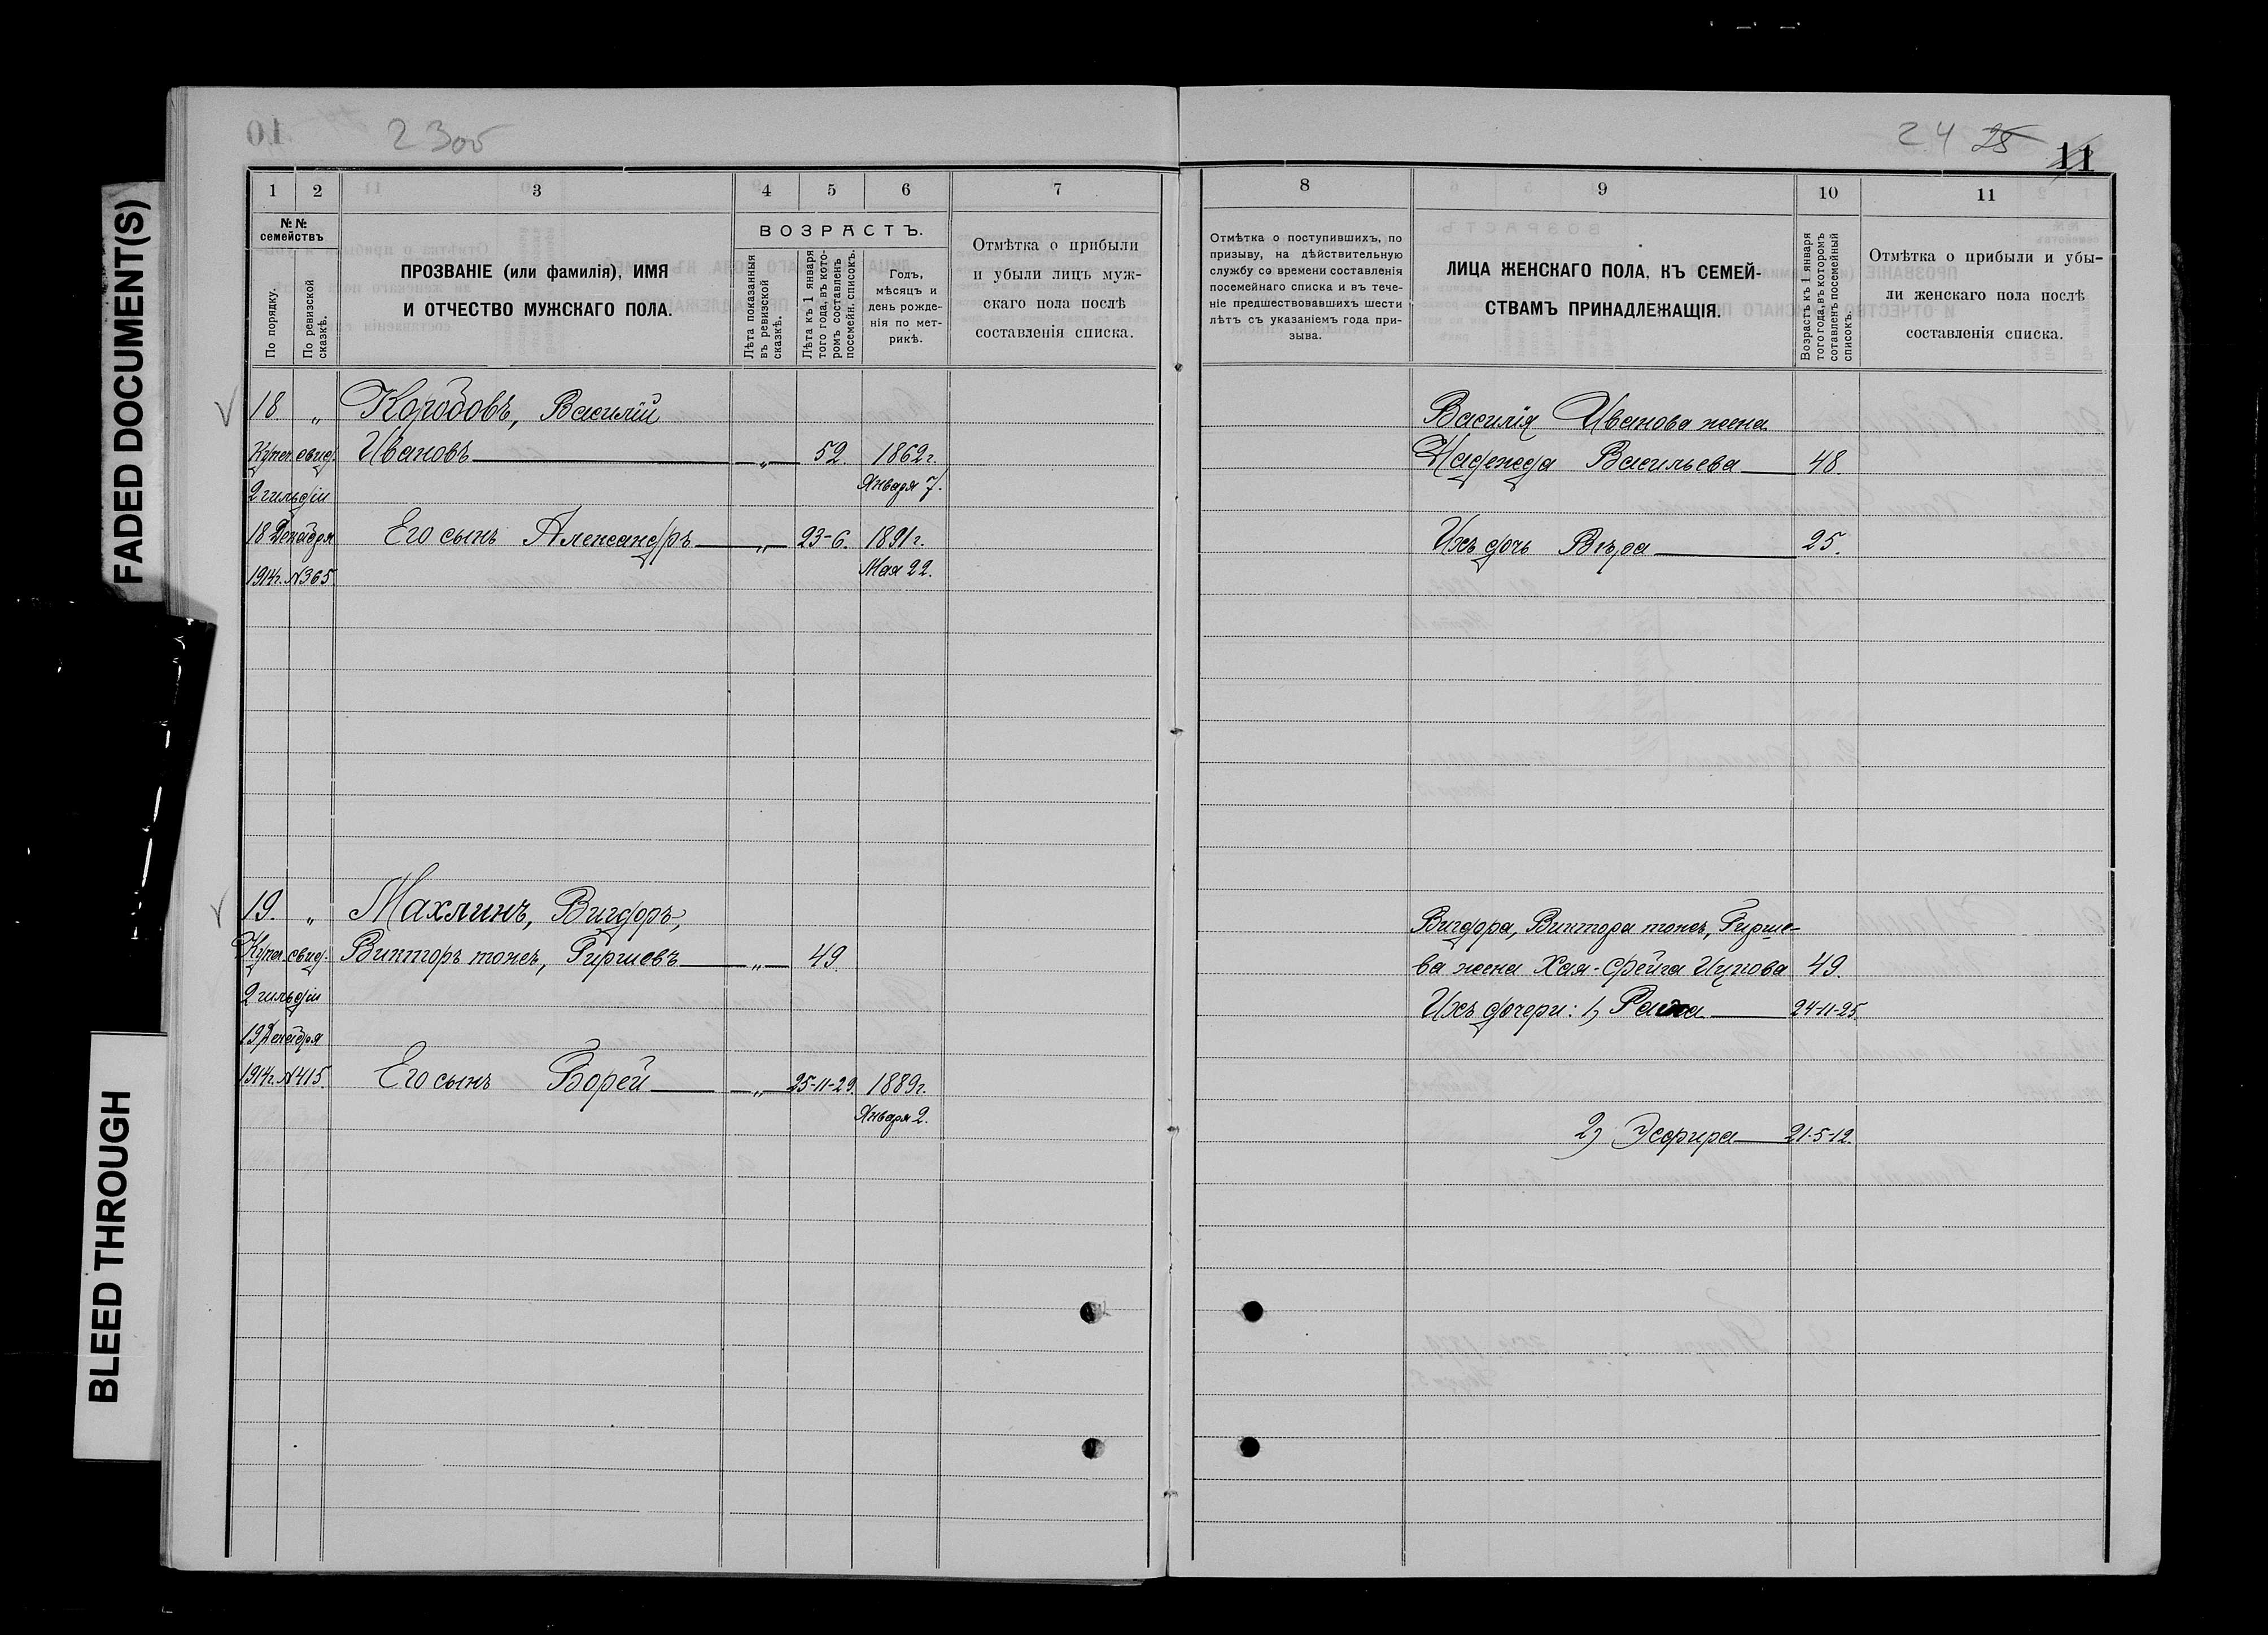 FADED DOCUMENT(S)
BLEED THROUGH
23об
24 25 11
1 2 3 4 5 6 7
№№ семействъ
По порядку.
По ревизской сказкѣ.
ПРОЗВАНІЕ (или фамилія), ИМЯ
И ОТЧЕСТВО МУЖСКАГО ПОЛА.
ВОЗРАСТЪ.
Лѣта показанныя въ ревизской сказкѣ.
Лѣта къ 1 января того года, въ которомъ составленъ посемейн. списокъ.
Годъ,
мѣсяцъ и
день рожде-
нія по мет-
рикѣ.
Отмѣтка о прибыли
и убыли лицъ муж-
скаго пола послѣ
составленія списка.
18 „ Коробовъ, Василій
Купеч. свид. Ивановъ „ 52. 1862 г.
2 гильдіи Января 7.
18 Декабря Его сынъ Александръ „ 23-6. 1891 г.
1914 г. №365. Мая 22.
19. „ Махлинъ, Вигдоръ,
Купеч. свид. Викторъ тожъ, Гиршевъ „ 49.
2 гильдіи
19 Декабря
1914 г. №415. Его сынъ Борей „ 25-11-29. 1889 г.
Января 2.
8 9 10 11
Отмѣтка о поступившихъ, по
призыву, на дѣйствительную
службу со времени составленія
посемейнаго списка и въ тече-
ніе предшествовавшихъ шести
лѣтъ съ указаніемъ года при-
зыва.
ЛИЦА ЖЕНСКАГО ПОЛА, КЪ СЕМЕЙ-
СТВАМЪ ПРИНАДЛЕЖАЩІЯ.
Возрастъ къ 1 января того года, въ которомъ сотавленъ посемейный списокъ.
Отмѣтка о прибыли и убы-
ли женскаго пола послѣ
составленія списка.
Василія Иванова жена
Надежда Васильева 48.
Ихъ дочь Вѣра 25.
Вигдора, Виктора тожъ, Гирше-
ва жена Хая-Фейга Ицкова 49.
Ихъ дочери: 1) 24-11-25.
2) Эсфира 21-5-12.